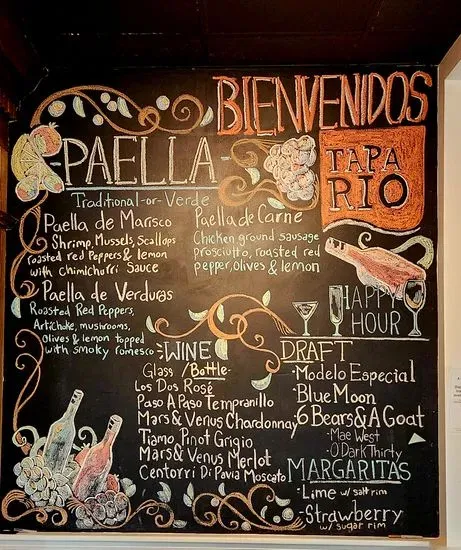 BIENVENIDOS
TAPA
RIO
PAELLA
Traditional-or-Verde
Paella de Marisco
Shrimp, Mussels, Scallops
roasted red Peppers & lemon
with chimichurri Sauce
Paella de Carne
Chicken ground sausage
prosciutto, roasted red
pepper, olives & lemon
Paella de Verduras
Roasted Red Peppers,
Artichoke, mushrooms,
Olives & lemon topped
with smoky romesco
HAPPY
HOUR
WINE
Glass / Bottle
Los Dos Rosé
Paso A Paso Tempranillo
Mars & Venus Chardonnay
Tiamo Pinot Grigio
Mars & Venus Merlot
Centorri Di Pavia Moscato
DRAFT
· Modelo Especial
· Blue Moon
6 Bears & A Goat
· Mae West
· O'Dark Thirty
MARGARITAS
· Lime w/ salt rim
· Strawberry
w/ sugar rim